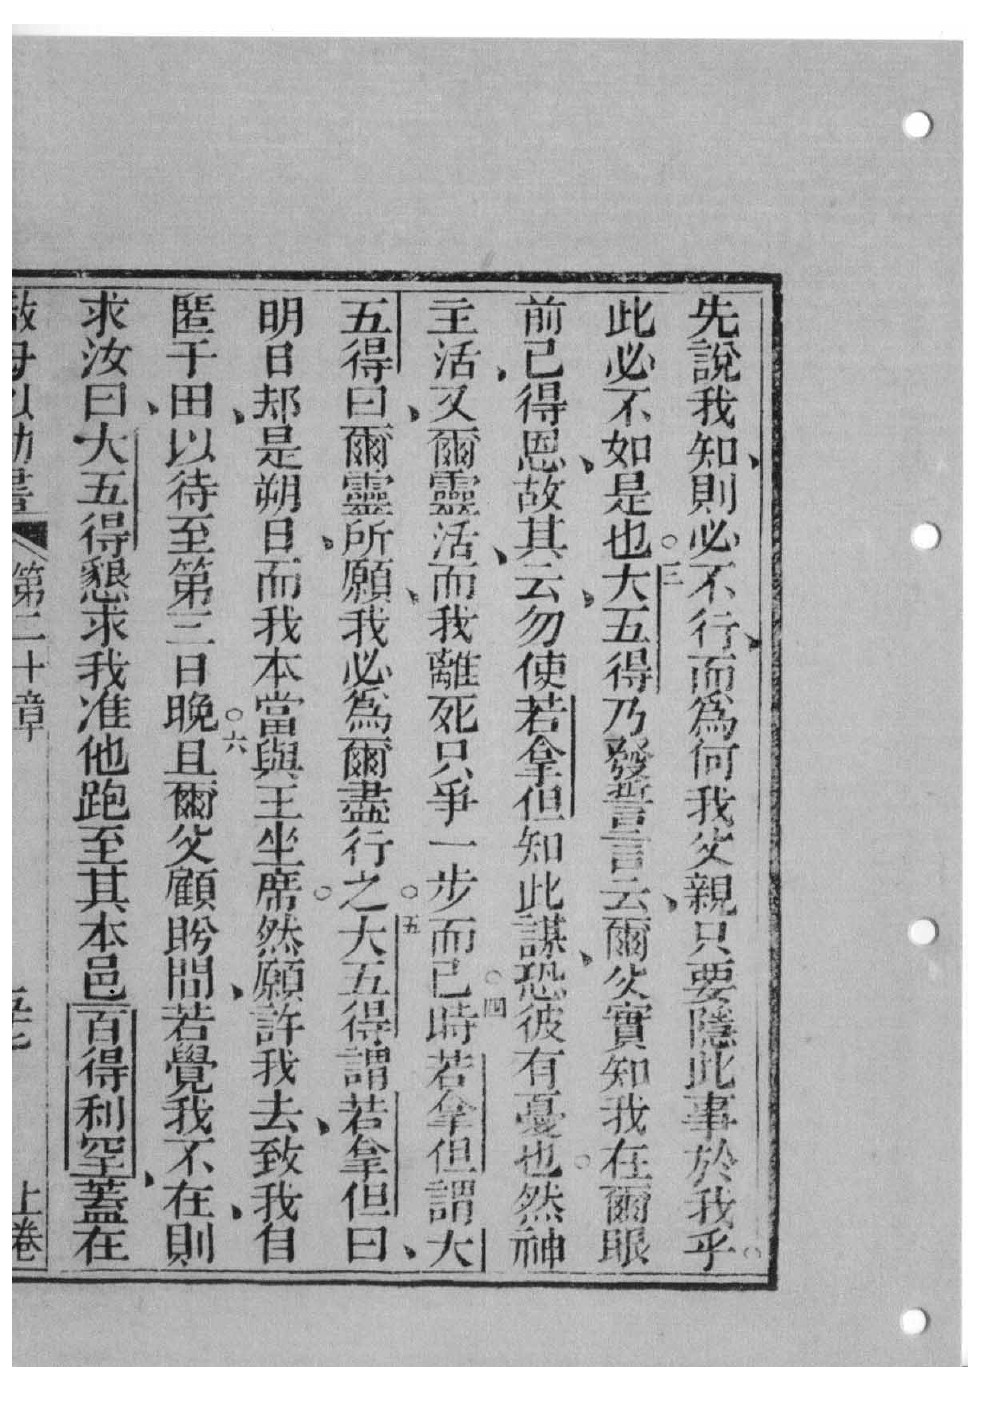 先說我知、則必不行、而爲何我父親只要隱此事於我乎。
此必不如是也。三大五得乃發誓言云、爾父實知我在爾眼
前已得恩、故其云、勿使若拿但知此謀、恐彼有憂也。然神
主活、又爾靈活、而我離死只爭一步而已。四時若拿但謂大
五得曰、爾靈所願、我必爲爾盡行之。五大五得謂若拿但曰、
明日却是朔日、而我本當與王坐席。然願許我去、致我自
匿于田、以待至第三日晚。六且爾父顧盻問、若覺我不在、則
求汝曰、大五得懇求我准他跑至其本邑百得利㘡、蓋在
第二十章
上卷